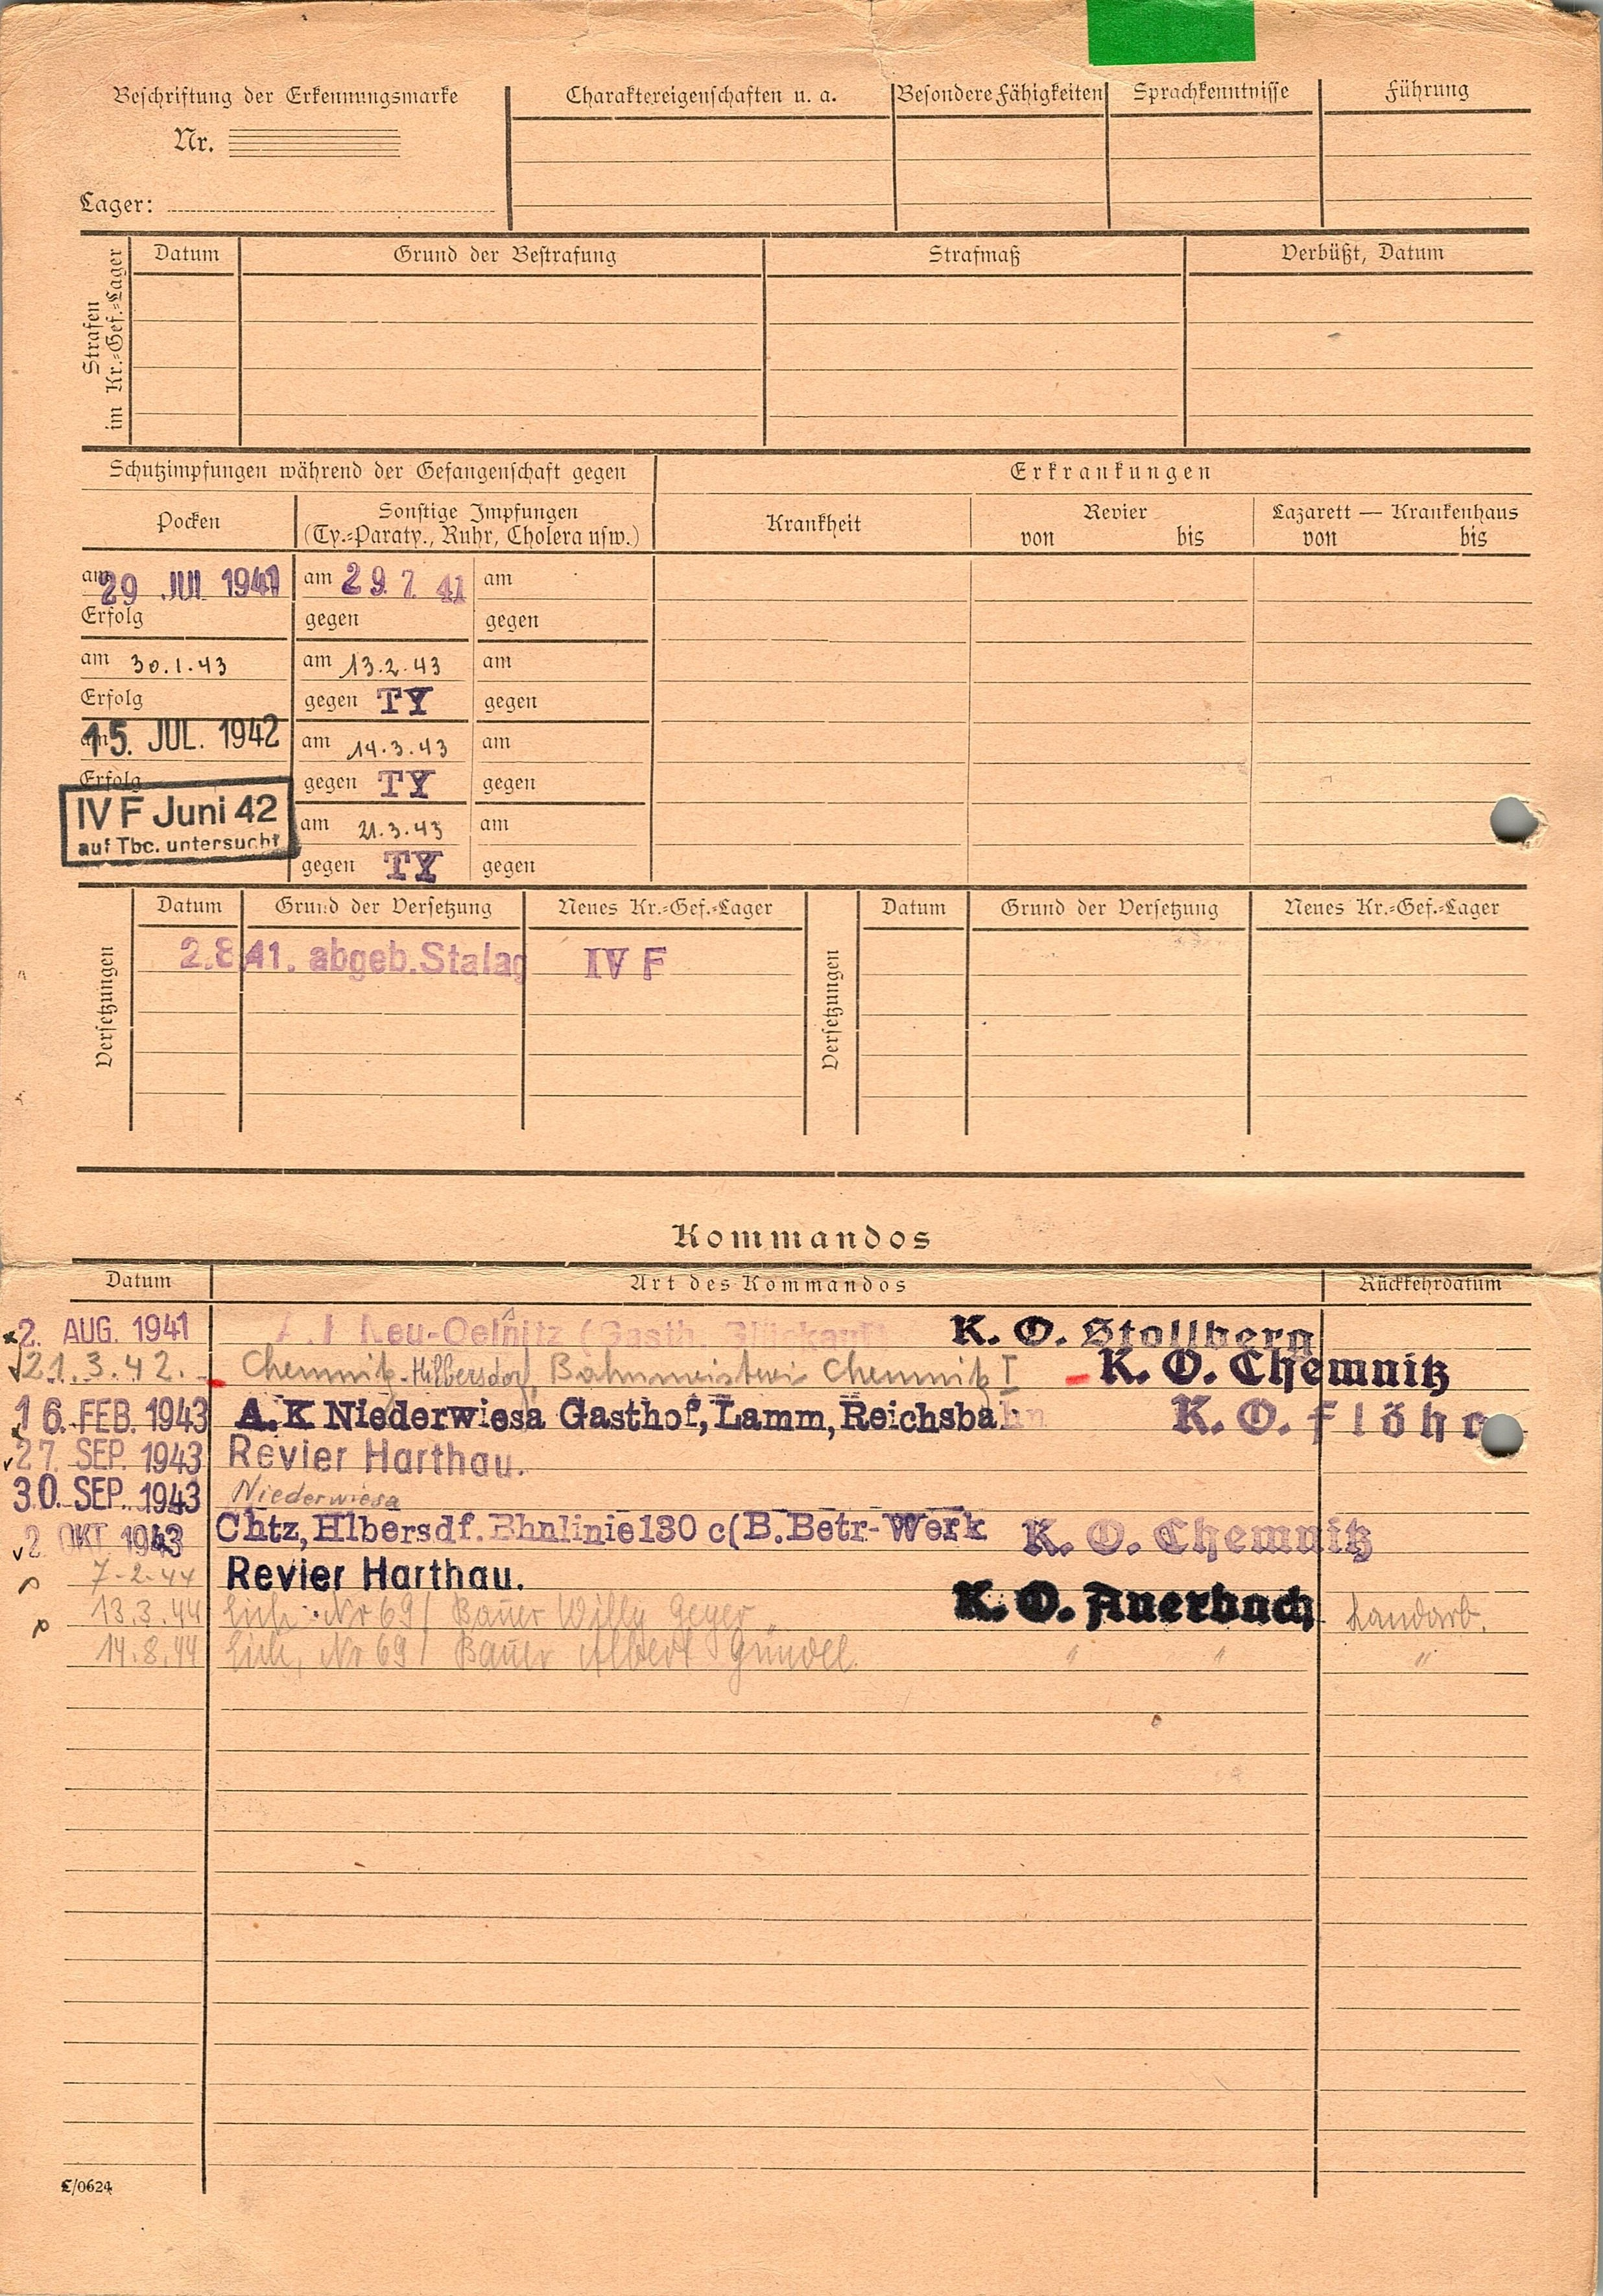 Beschriftung der Erkennungsmarke
Nr.
Lager:
Charaktereigenschaften u. a.
Besondere Fähigkeiten
Sprachkenntnisse
Führung
Strafen
im Kr.=Gef.=Lager
Datum
Grund der Bestrafung
Strafmaß
Verbüßt, Datum
Schutzimpfungen während der Gefangenschaft gegen
Erkrankungen
Pocken
Sonstige Impfungen
(Ty.=Paraty., Ruhr, Cholera usw.)
Krankheit
Revier
von bis
Lazarett — Krankenhaus
von bis
am 29 JUL 1941 am 29 7 41 am
Erfolg gegen gegen
am 30.1.43 am 13.2.43 am
Erfolg gegen TY gegen
am 15. JUL. 1942 am 14.3.43 am
Erfolg gegen TY gegen
IV F Juni 42
auf Tbc. untersucht
am 21.3.43 am
gegen TY gegen
Versetzungen
Datum Grund der Versetzung Neues Kr.=Gef.=Lager
2.8.41. abgeb. Stalag IV F
Versetzungen
Datum Grund der Versetzung Neues Kr.=Gef.=Lager
Kommandos
Datum Art des Kommandos Rückkehrdatum
2. AUG. 1941 Neu-Oelsnitz (Gasth. Glückauf K. O. Stollberg
21.3.42. Chemnitz-Hilbersdorf Bahnmeisterei Chemnitz I K. O. Chemnitz
16. FEB. 1943 A. K Niederwiesa Gasthof, Lamm, Reichsbahn K. O. Flöha
27. SEP. 1943 Revier Harthau.
30. SEP. 1943 Niederwiesa
2. OKT 1943 Chtz, Hlbersdf. Bhnlinie 130 c (B. Betr-Werk K. O. Chemnitz
7-2-44 Revier Harthau.
13.3.44 Eich Nr 69 / Bauer Willy Geyer K. O. Auerbach Landarb.
14.8.44 Eich, Nr 69 / Bauer Albert Gündel. " " "
C/0624